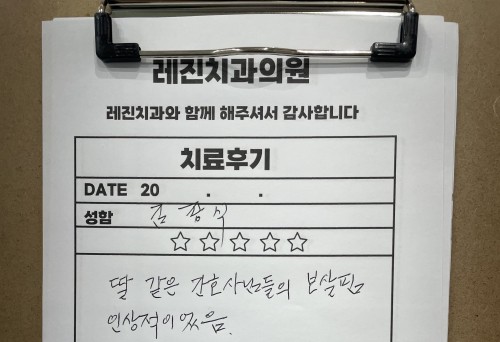 레진치과의원
레진치과와 함께 해주셔서 감사합니다
치료후기
DATE 20 . .
성함
☆☆☆☆☆
딸 같은 간호사님들의 보살핌
인상적이었음.